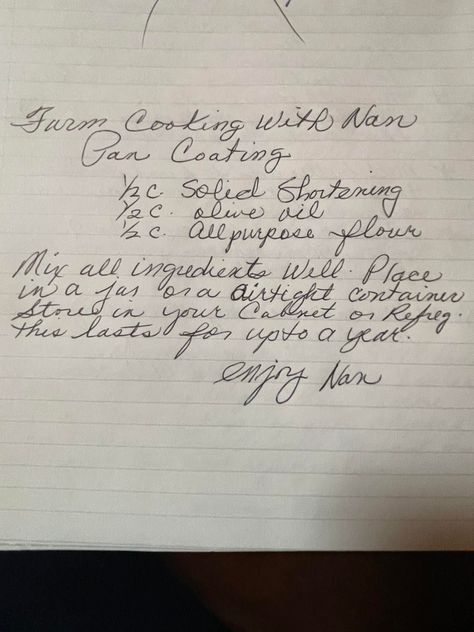 Farm Cooking With Nan
Pan Coating
1/2 c. Solid Shortening
1/2 c. olive oil
1/2 c. Allpurpose flour
Mix all ingredients Well. Place
in a jar or a airtight container
Store in your Cabnet or Refreg.
this lasts for upto a year.
enjoy Nan